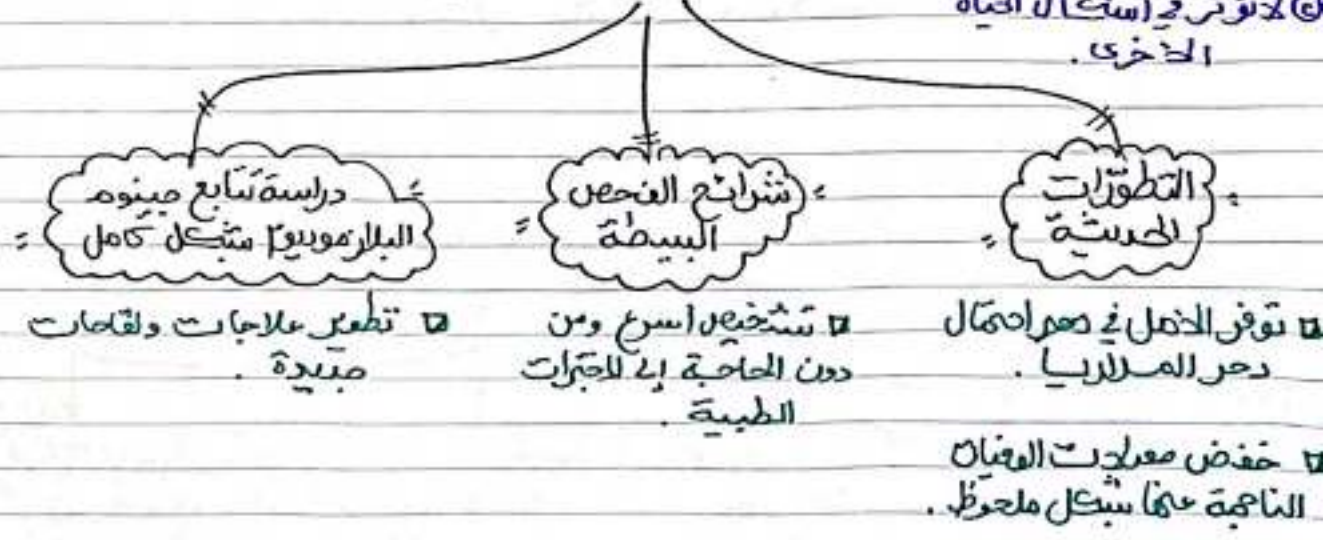 لا تؤثر في أشكال الحياة
الأخرى.
التطوّرات
الحديثة
توفر الأمل في احتمال
دحر الملاريا.
خفض معدلات الوفيات
الناجمة عنها بشكل ملحوظ.
شرائح الفحص
البسيطة
تشخيص أسرع ومن
دون الحاجة إلى للاختبرات
الطبية.
دراسة تتابع جينوم
البلازموديوم بشكل كامل
تطوير علاجات ولقاحات
جديدة.